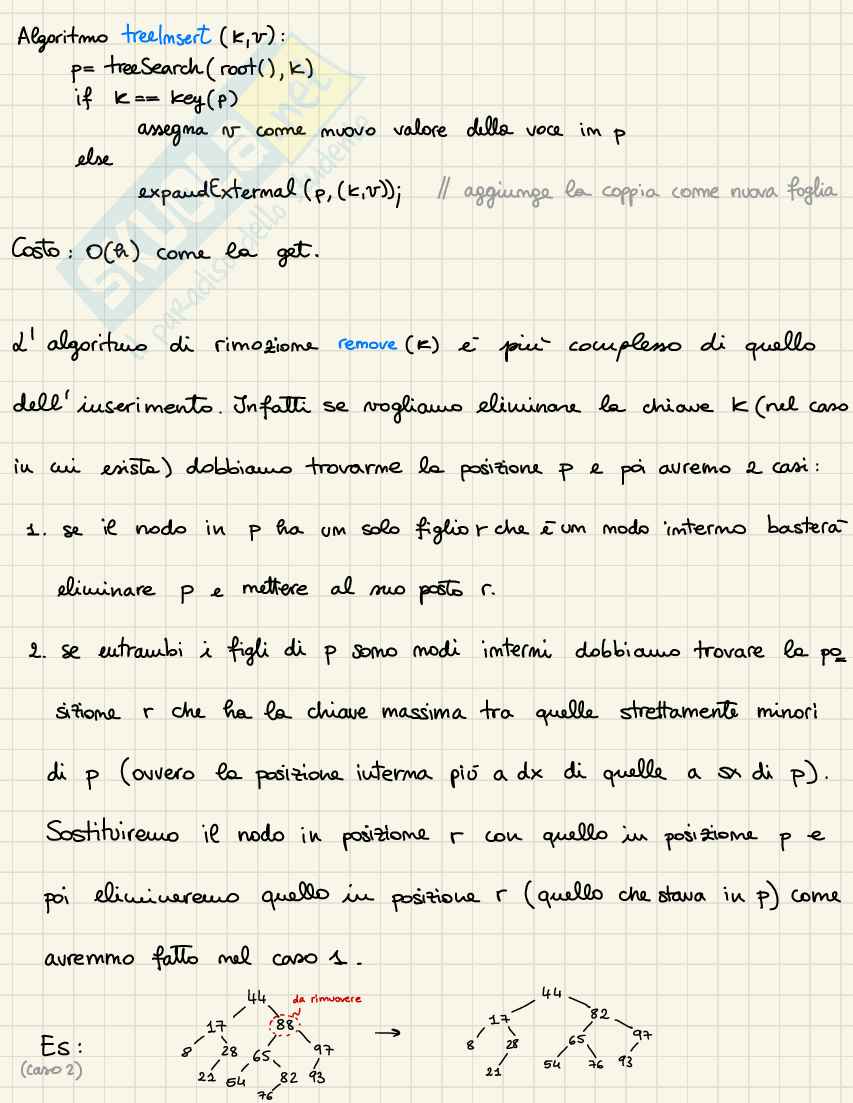 Algoritmo treeInsert (k,v):
p= treeSearch(root(), k)
if k == key(p)
assegna v come nuovo valore della voce in p
else
expandExternal (p, (k,v)); // aggiunge la coppia come nuova foglia
Costo: O(h) come la get.
L' algoritmo di rimozione remove (k) è più complesso di quello
dell' inserimento. Infatti se vogliamo eliminare la chiave k (nel caso
in cui esista) dobbiamo trovarne la posizione p e poi avremo 2 casi:
1. se il nodo in p ha un solo figlio r che è un nodo interno basterà
eliminare p e mettere al suo posto r.
2. se entrambi i figli di p sono nodi interni dobbiamo trovare la po
sizione r che ha la chiave massima tra quelle strettamente minori
di p (ovvero la posizione interna più a dx di quelle a sx di p).
Sostituiremo il nodo in posizione r con quello in posizione p e
poi elimineremo quello in posizione r (quello che stava in p) come
avremmo fatto nel caso 1.
Es:
(caso 2)
44 da rimuovere
17 88
8 28 65 97
21 54 82 93
76
→
44
17 82
8 28 65 97
21 54 76 93
SKUOLA.net
il paradiso dello studente